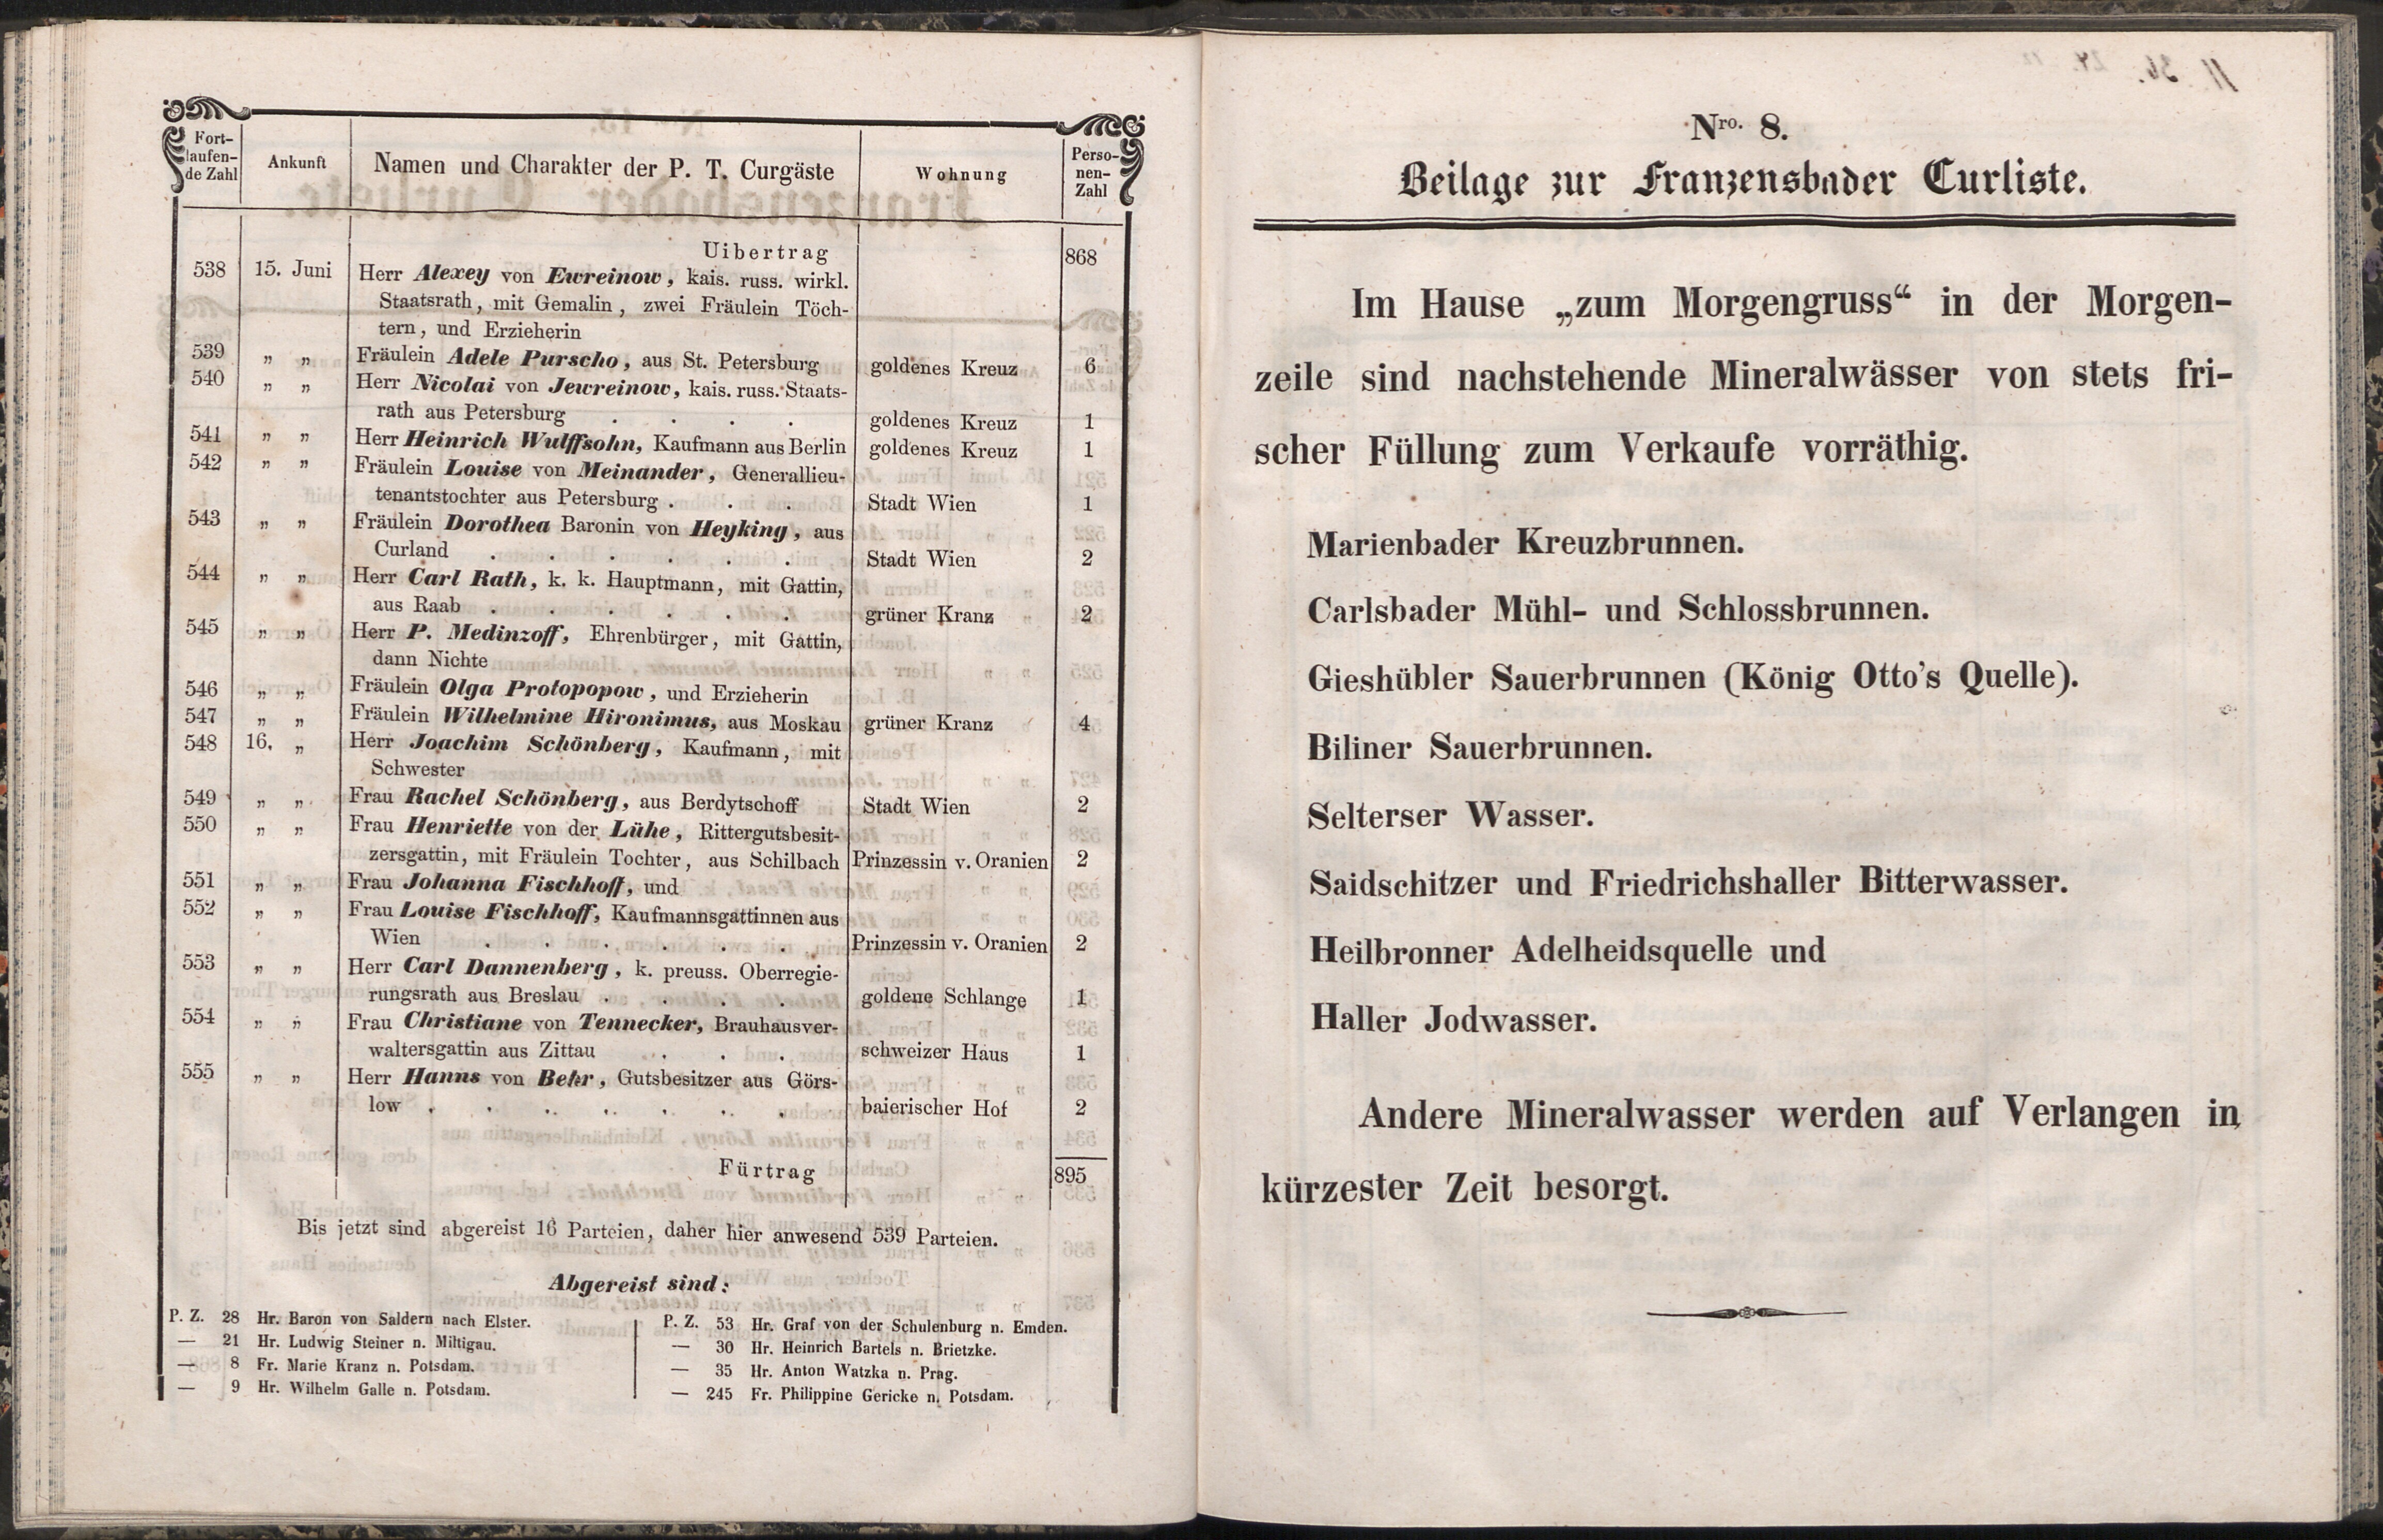 Fort-
laufen-
de Zahl
Ankunft
Namen und Charakter der P. T. Curgäste
Wohnung
Perso-
nen-
Zahl
Uibertrag 868
538 15. Juni Herr Alexey von Ewreinow, kais. russ. wirkl.
Staatsrath, mit Gemalin, zwei Fräulein Töch-
tern, und Erzieherin
539 „ „ Fräulein Adele Purscho, aus St. Petersburg goldenes Kreuz 6
540 „ „ Herr Nicolai von Jewreinow, kais. russ. Staats-
rath aus Petersburg . . . . goldenes Kreuz 1
541 „ „ Herr Heinrich Wulffsohn, Kaufmann aus Berlin goldenes Kreuz 1
542 „ „ Fräulein Louise von Meinander, Generallieu-
tenantstochter aus Petersburg . . . Stadt Wien 1
543 „ „ Fräulein Dorothea Baronin von Heyking, aus
Curland . . . . . . Stadt Wien 2
544 „ „ Herr Carl Rath, k. k. Hauptmann, mit Gattin,
aus Raab . . . . . . grüner Kranz 2
545 „ „ Herr P. Medinzoff, Ehrenbürger, mit Gattin,
dann Nichte
546 „ „ Fräulein Olga Protopopow, und Erzieherin
547 „ „ Fräulein Wilhelmine Hironimus, aus Moskau grüner Kranz 4
548 16. „ Herr Joachim Schönberg, Kaufmann, mit
Schwester
549 „ „ Frau Rachel Schönberg, aus Berdytschoff Stadt Wien 2
550 „ „ Frau Henriette von der Lühe, Rittergutsbesit-
zersgattin, mit Fräulein Tochter, aus Schilbach Prinzessin v. Oranien 2
551 „ „ Frau Johanna Fischhoff, und
552 „ „ Frau Louise Fischhoff, Kaufmannsgattinnen aus
Wien . . . . . . Prinzessin v. Oranien 2
553 „ „ Herr Carl Dannenberg, k. preuss. Oberregie-
rungsrath aus Breslau . . . . goldene Schlange 1
554 „ „ Frau Christiane von Tennecker, Brauhausver-
waltersgattin aus Zittau . . . schweizer Haus 1
555 „ „ Herr Hanns von Behr, Gutsbesitzer aus Görs-
low . . . . . . . baierischer Hof 2
Fürtrag 895
Bis jetzt sind abgereist 16 Parteien, daher hier anwesend 539 Parteien.
Abgereist sind:
P. Z. 28 Hr. Baron von Saldern nach Elster.
— 21 Hr. Ludwig Steiner n. Miltigau.
— 8 Fr. Marie Kranz n. Potsdam.
— 9 Hr. Wilhelm Galle n. Potsdam.
P. Z. 53 Hr. Graf von der Schulenburg n. Emden.
— 30 Hr. Heinrich Bartels n. Brietzke.
— 35 Hr. Anton Watzka n. Prag.
— 245 Fr. Philippine Gericke n. Potsdam.
Nro. 8.
Beilage zur Franzensbader Curliste.
Im Hause „zum Morgengruss“ in der Morgen-
zeile sind nachstehende Mineralwässer von stets fri-
scher Füllung zum Verkaufe vorräthig.
Marienbader Kreuzbrunnen.
Carlsbader Mühl- und Schlossbrunnen.
Gieshübler Sauerbrunnen (König Otto's Quelle).
Biliner Sauerbrunnen.
Selterser Wasser.
Saidschitzer und Friedrichshaller Bitterwasser.
Heilbronner Adelheidsquelle und
Haller Jodwasser.
Andere Mineralwasser werden auf Verlangen in
kürzester Zeit besorgt.